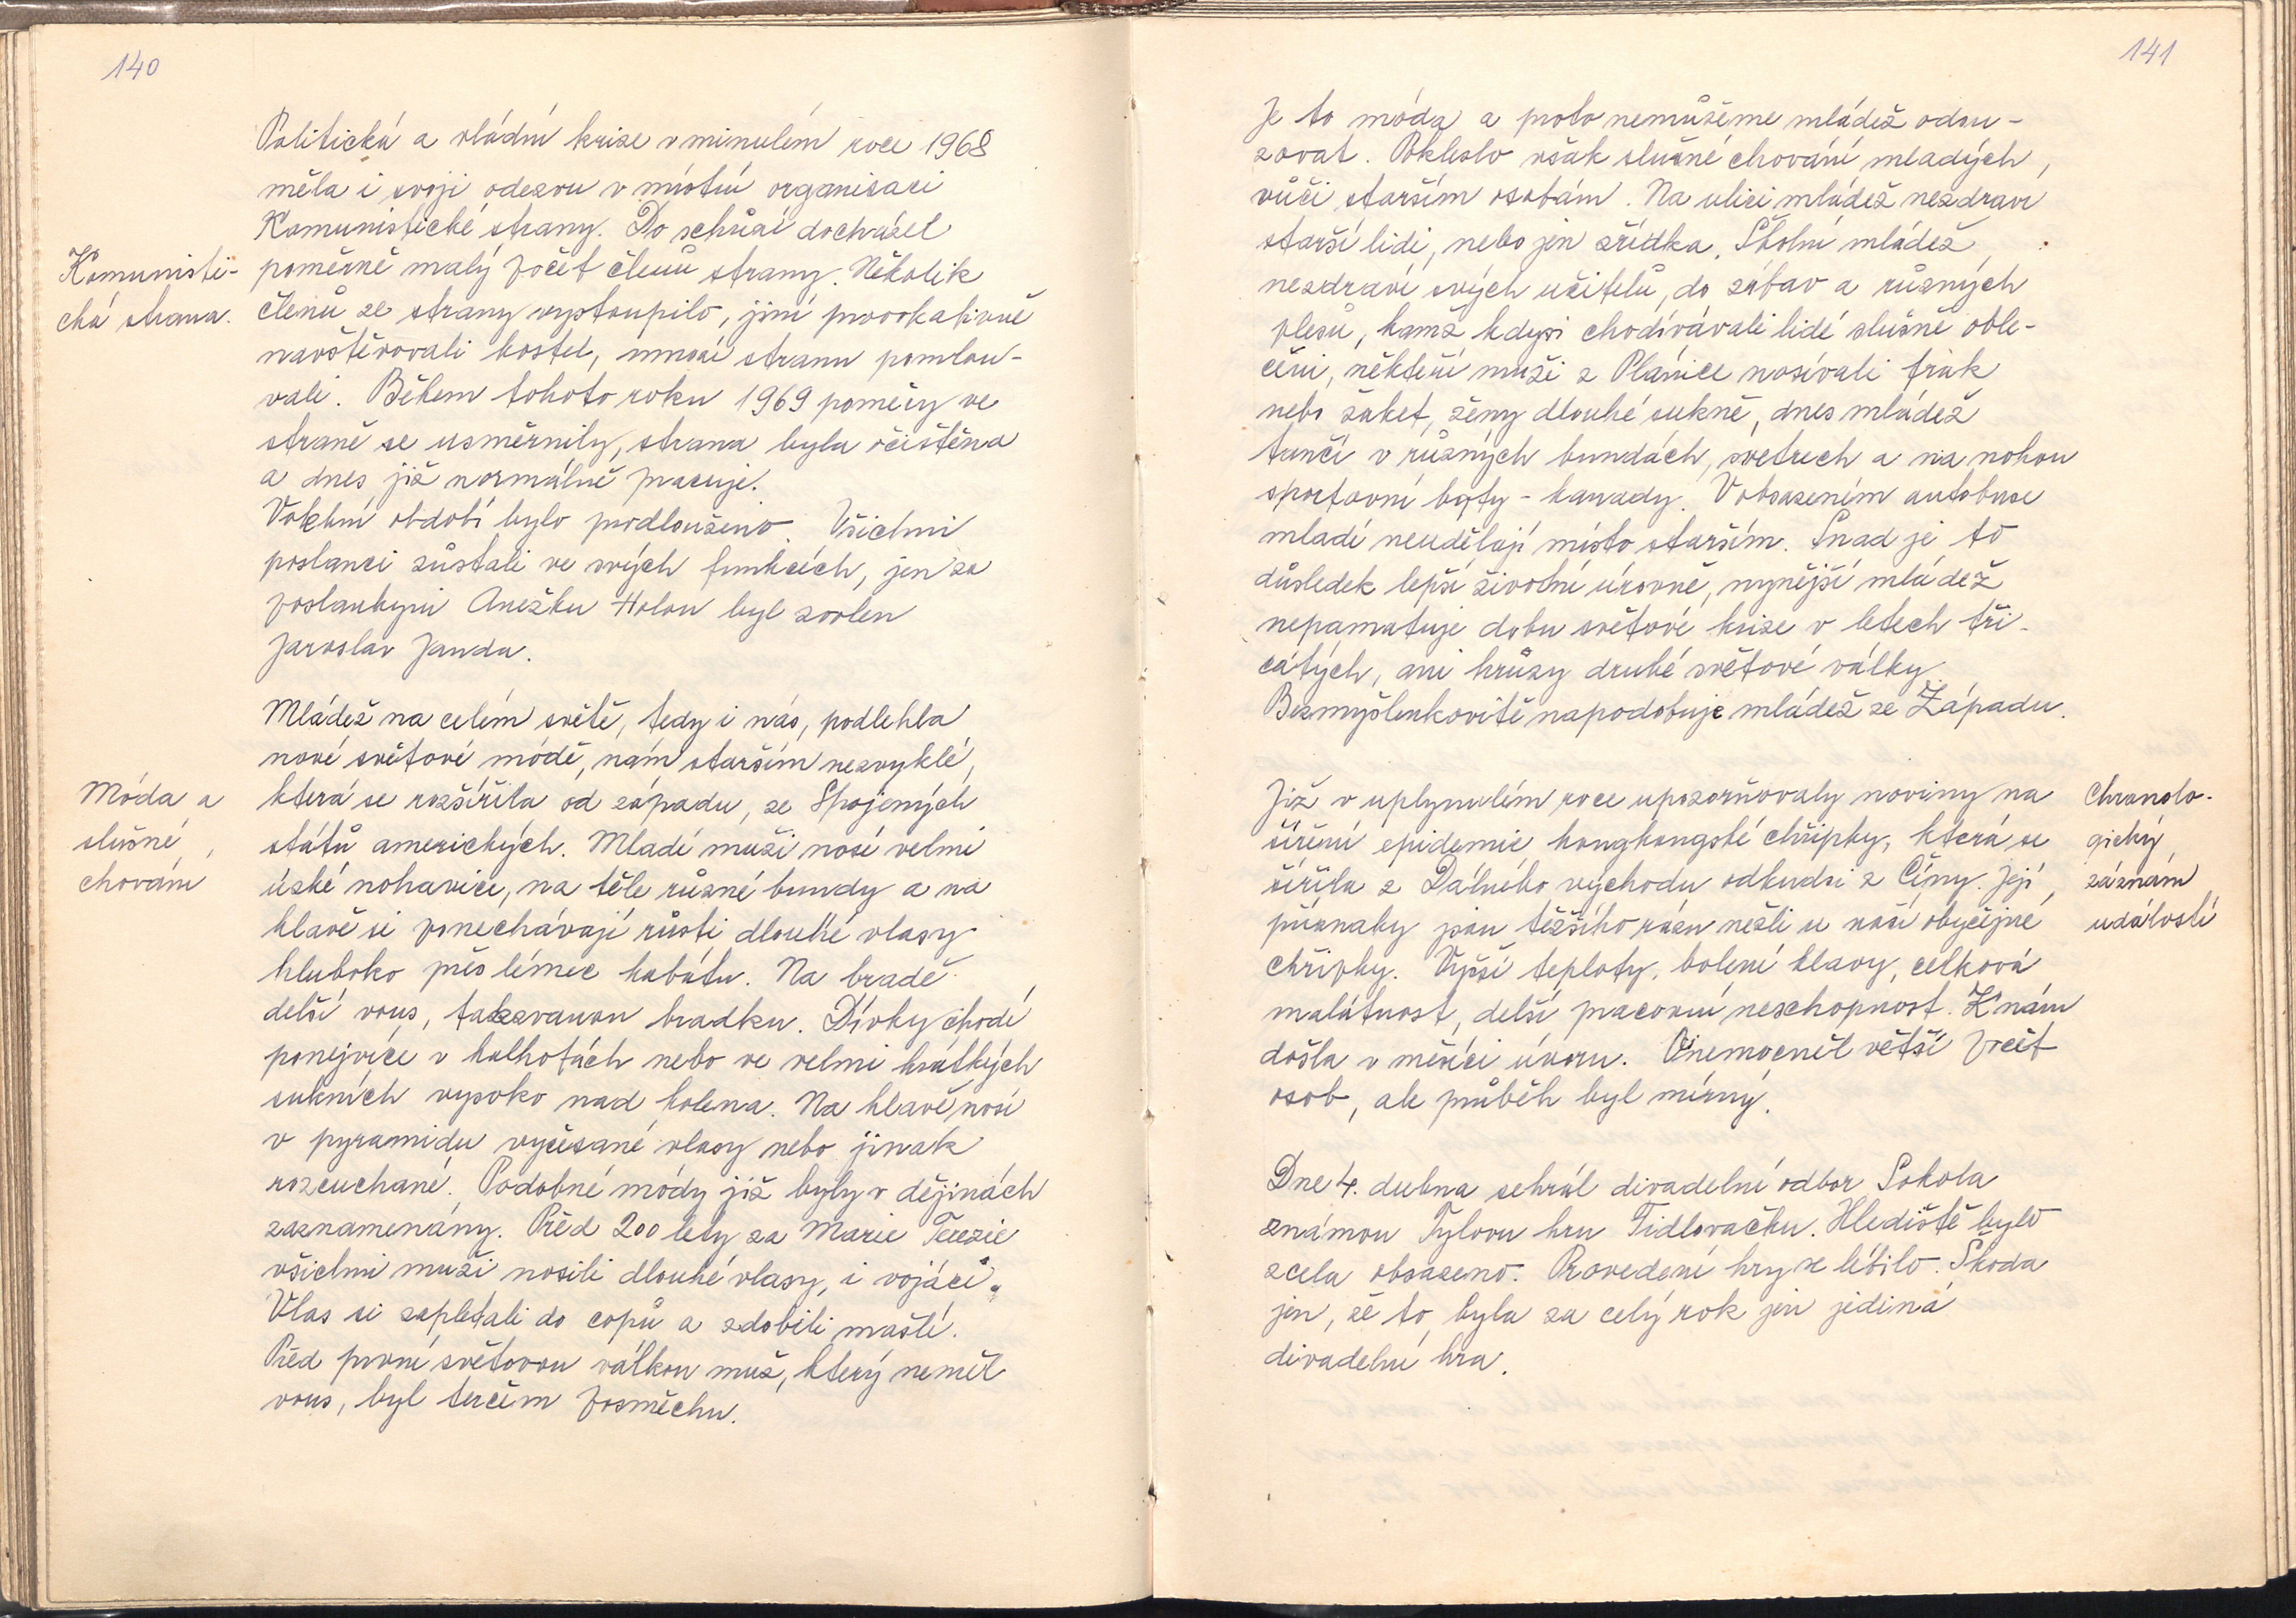 140
Politická a vládní krize v minulém roce 1968
měla i svoji odezvu v místní organisaci
Komunistické strany. Do schůzí docházel
Komunisti-
cká strana.
poměrně malý počet členů strany. Několik
členů ze strany vystoupilo, jiní provokativně
navštěvovali kostel, mnozí stranu pomlou-
vali. Během tohoto roku 1969 poměry ve
straně se usměrnily, strana byla očištěna
a dnes již normálně pracuje.
Volební období bylo prodlouženo. Všichni
poslanci zůstali ve svých funkcích, jen za
poslankyni Anežku Holou byl zvolen
Jaroslav Janda.
Mládež na celém světě, tedy i nás, podlehla
nové světové módě, nám starším nezvyklé,
Móda a
slušné
chování
která se rozšířila od západu, ze Spojených
států amerických. Mladí muži nosí velmi
úzké nohavice, na těle různé bundy a na
hlavě si ponechávají růsti dlouhé vlasy
hluboko přes límec kabátu. Na bradě
delší vous, takzvanou bradku. Dívky chodí
ponejvíce v kalhotách nebo ve velmi krátkých
sukních vysoko nad kolena. Na hlavě nosí
v pyramidu vyčesané vlasy nebo jinak
rozcuchané. Podobné módy již byly v dějinách
zaznamenány. Před 200 lety za Marie Terezie
všichni muži nosili dlouhé vlasy, i vojáci.
Vlas si zapletali do copů a zdobili mašlí.
Před první světovou válkou muž, který neměl
vous, byl terčem posměchu.
141
Je to móda a proto nemůžeme mládež odsu-
zovat. Pokleslo však slušné chování mladých,
vůči starším osobám. Na ulici mládež nezdraví
starší lidi, nebo jen zřídka. Školní mládež
nezdraví svých učitelů, do zábav a různých
plesů, kamž kdysi chodívávali lidé slušně oble-
čeni, někteří muži z Plánice nosívali frak
nebo žaket, ženy dlouhé sukně, dnes mládež
tančí v různých bundách, svetrech a na nohou
sportovní boty - kanady. V obsazeném autobuse
mladí neudělají místo starším. Snad je to
důsledek lepší životní úrovně, nynější mládež
nepamatuje dobu světové krize v letech tři-
cátých, ani hrůzy druhé světové války.
Bezmyšlenkovitě napodobuje mládež ze Západu.
Již v uplynulém roce upozorňovaly noviny na
šíření epidemie hongkongské chřipky, která se
šířila z Dálného východu odkudsi z Číny. Její
příznaky jsou těžšího rázu nežli u naší obyčejné
chřipky. Vyšší teploty, bolení hlavy, celková
malátnost, delší pracovní neschopnost. K nám
došla v měsíci únoru. Onemocněl větší počet
osob, ale průběh byl mírný.
Chronolo-
gický
záznám
událostí
Dne 4. dubna sehrál divadelní odbor Sokola
známou Tylovu hru Fidlovačku. Hlediště bylo
zcela obsazeno. Provedení hry se líbilo. Škoda
jen, že to byla za celý rok jen jediná
divadelní hra.